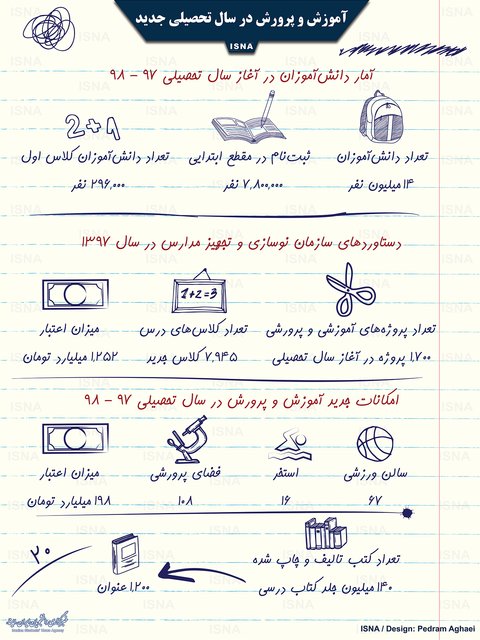 آموزش و پرورش در سال تحصیلی جدید
ISNA
آمار دانش‌آموزان در آغاز سال تحصیلی ۹۷ - ۹۸
تعداد دانش‌آموزان
۱۴ میلیون نفر
ثبت‌نام در مقطع ابتدایی
۷,۸۰۰,۰۰۰ نفر
2+1
تعداد دانش‌آموزان کلاس اول
۲۹۶,۰۰۰ نفر
دستاوردهای سازمان نوسازی و تجهیز مدارس در سال ۱۳۹۷
تعداد پروژه‌های آموزشی و پرورشی
۱,۷۰۰ پروژه در آغاز سال تحصیلی
1+2=3
تعداد کلاس‌های درس
۷,۹۴۵ کلاس جدید
میزان اعتبار
۱,۲۵۲ میلیارد تومان
امکانات جدید آموزش و پرورش در سال تحصیلی ۹۷ - ۹۸
سالن ورزشی
۶۷
استخر
۱۶
فضای پرورشی
۱۰۸
میزان اعتبار
۱۹۸ میلیارد تومان
تعداد کتب تالیف و چاپ شده
۱۴۰ میلیون جلد کتاب درسی
۱,۲۰۰ عنوان
۲۰
ISNA / Design: Pedram Aghaei